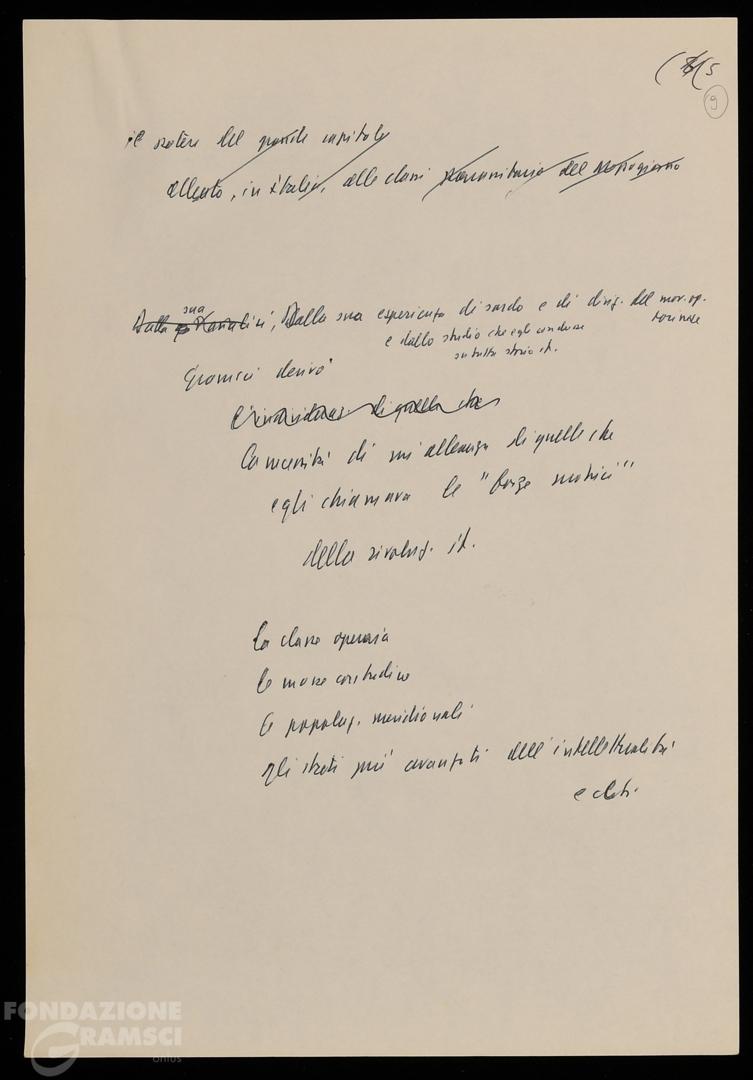 5
9
il potere del grande capitale
alleato, in Italia, alle classi del Mezzogiorno
Dalla sua analisi, Dalla sua esperienza di sardo e di dirig. del mov. op. torinese
e dallo studio che egli condusse
su tutta storia it.
Gramsci derivò
di quella che
la necessità di un'alleanza di quelle che
egli chiamava le "forze motrici"
della rivoluz. it.
la classe operaia
le masse contadine
le popolaz. meridionali
gli strati più avanzati dell'intellettualità
FONDAZIONE
GRAMSCI
onlus